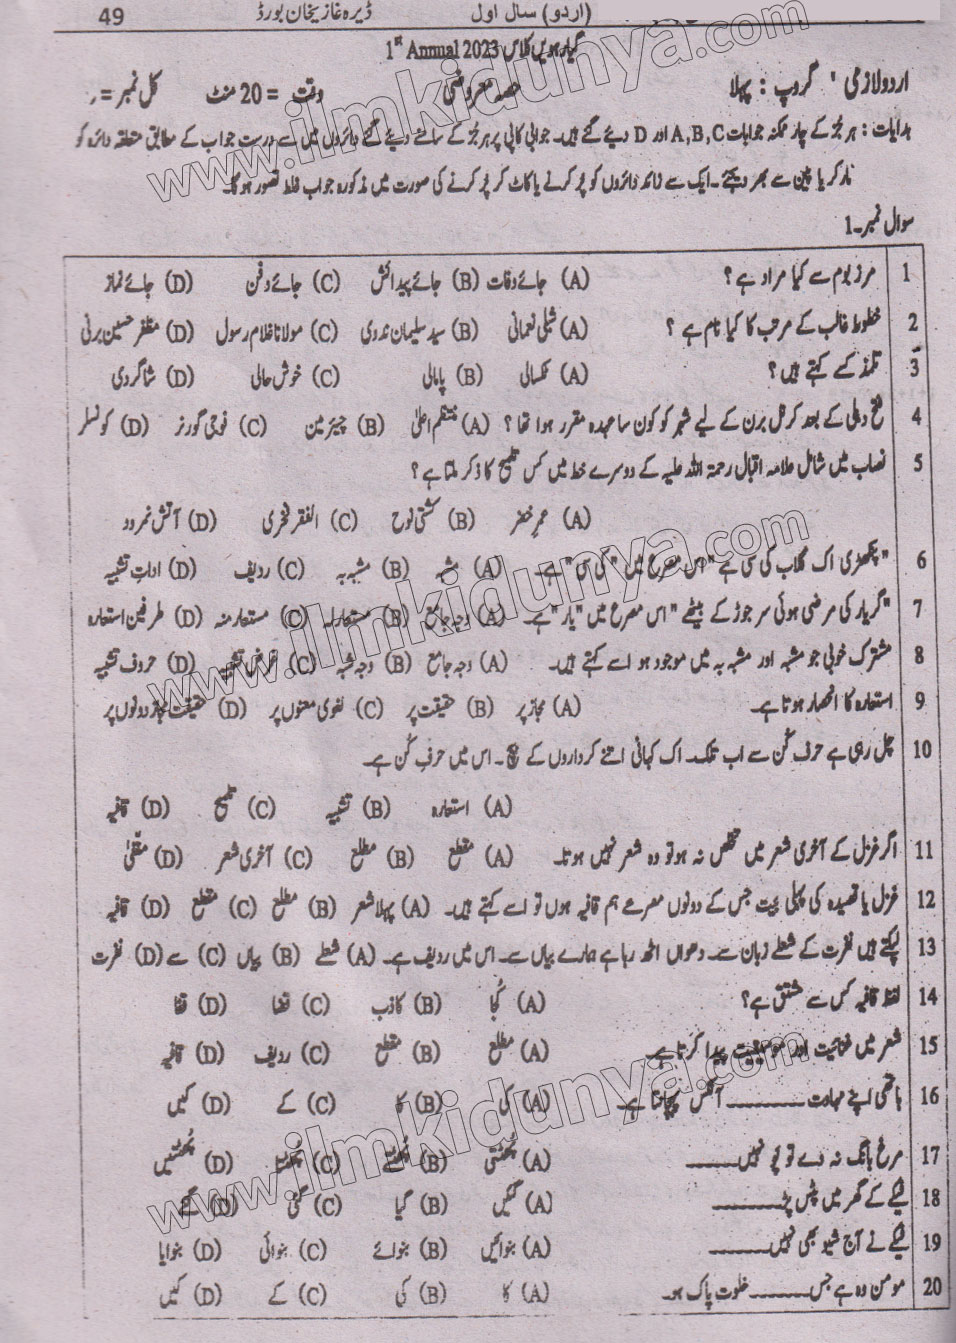 49 (اردو) سال اول ڈیرہ غازیخان بورڈ
گیارہویں کلاس 1st Annual 2023
اردو لازمی ' گروپ : پہلا حصہ معروضی وقت = 20 منٹ کل نمبر =
ہدایات : ہر جُز کے چار ممکنہ جوابات A,B,C اور D دیئے گئے ہیں۔ جوابی کاپی پر ہر جُز کے سامنے دیئے گئے دائروں میں سے درست جواب کے مطابق متعلقہ دائرہ کو
مارکر یا پین سے بھر دیجئے۔ ایک سے زائد دائروں کو پُر کرنے یا کاٹ کر پُر کرنے کی صورت میں مذکورہ جواب غلط تصور ہوگا۔
سوال نمبر۔1
1 مرزبوم سے کیا مراد ہے؟ (A) جائے وفات (B) جائے پیدائش (C) جائے دفن (D) جائے نماز
2 خطوط غالب کے مرتب کا کیا نام ہے ؟ (A) شبلی نعمانی (B) سید سلیمان ندوی (C) مولانا غلام رسول (D) مظفر حسین برنی
3 تلمذ کسے کہتے ہیں؟ (A) ٹکسالی (B) پامالی (C) خوش حالی (D) شاگردی
4 فتح دہلی کے بعد کرنل برن کے لیے شہر کو کون سا عہدہ مقرر ہوا تھا ؟ (A) منتظم اعلیٰ (B) چیئرمین (C) فوجی گورنر (D) کونسلر
5 نصاب میں شامل علامہ اقبال رحمۃ اللہ علیہ کے دوسرے خط میں کس تلمیح کا ذکر ملتا ہے؟
(A) عمرِ خضر (B) کشتی نوح (C) الفقر فخری (D) آتش نمرود
6 "پنکھڑی اک گلاب کی سی ہے" اس مصرع میں "کی سی" ہے۔ (A) مشبہ (B) مشبہ بہ (C) ردیف (D) اداتِ تشبیہ
7 "گریار کی مرضی ہوئی سر جوڑ کے بیٹھے" اس مصرع میں "یار" ہے۔ (A) وجہ جامع (B) مستعارلہ (C) مستعار منہ (D) طرفین استعارہ
8 مشترک خوبی جو مشبہ اور مشبہ بہ میں موجود ہو اسے کہتے ہیں۔ (A) وجہ جامع (B) وجہ شبہ (C) غرضِ تشبیہ (D) حروف تشبیہ
9 استعارہ کا انحصار ہوتا ہے۔ (A) مجاز پر (B) حقیقت پر (C) لغوی معنوں پر (D) حقیقت مجاز دونوں پر
10 چل رہی ہے حرف کُن سے اب تلک۔ اک کہانی اتنے کرداروں کے بیچ ۔ اس میں حرفِ کُن ہے۔
(A) استعارہ (B) تشبیہ (C) تلمیح (D) قافیہ
11 اگر غزل کے آخری شعر میں تخلص نہ ہو تو وہ شعر نہیں ہوتا۔ (A) مقطع (B) مطلع (C) آخری شعر (D) مقفیٰ
12 غزل یا قصیدہ کی پہلی بیت جس کے دونوں مصرعے ہم قافیہ ہوں تو اسے کہتے ہیں۔ (A) پہلا شعر (B) مطلع (C) مقطع (D) قافیہ
13 لپکتے ہیں نفرت کے شعلے زبان سے۔ دھواں اٹھ رہا ہے ہمارے بیاں سے۔ اس میں ردیف ہے۔ (A) شعلے (B) بیاں (C) سے (D) نفرت
14 لفظ قافیہ کس سے مشتق ہے؟ (A) کُجا (B) کاذب (C) قضا (D) قفا
15 شعر میں غنائیت اور موسیقیت پیدا کرتا ہے۔ (A) مطلع (B) مقطع (C) ردیف (D) قافیہ
16 ہاتھی اپنے مہاوت ـــــــــ آنکس پہچانتا ہے۔ (A) کی (B) کا (C) کے (D) کیں
17 مرغ بانگ نہ دے تو پَو نہیں ـــــــــ (A) پُھٹتی (B) پُھٹتے (C) پُھٹتا (D) پُھٹتیں
18 ٹیکے کے گھر میں پٹس پڑ ـــــــــ (A) گئیں (B) گیا (C) گئی (D) گئے
19 ٹیکے نے آج شیو بھی نہیں ـــــــــ (A) بنوائیں (B) بنوائے (C) بنوائی (D) بنوایا
20 مومن وہ ہے جس ـــــــــ خلوت پاک ہو۔ (A) کا (B) کی (C) کے (D) کیں
www.ilmkidunya.com
www.ilmkidunya.com
www.ilmkidunya.com